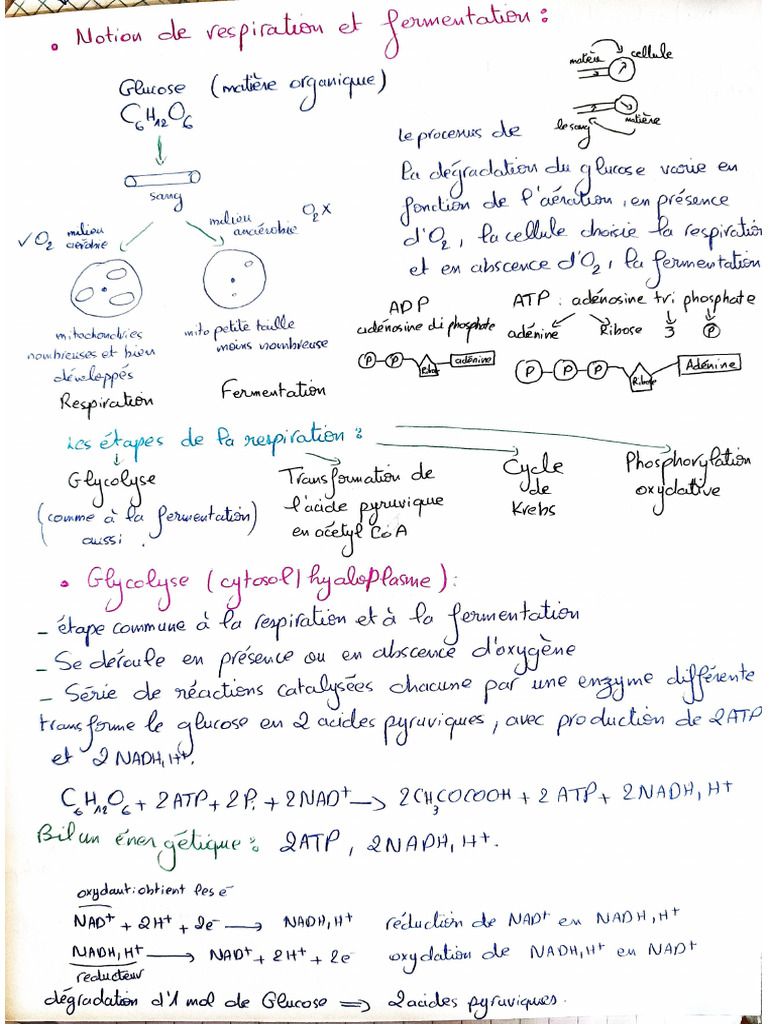 • Notion de respiration et fermentation :
Glucose (matière organique)
C6H12O6
sang
matière
cellule
le sang
matière
le processus de
la dégradation du glucose varie en
fonction de l'aération, en présence
d'O2, la cellule choisie la respiration
et en abscence d'O2, la fermentation
✓O2 milieu aérobie
milieu anaérobie O2 X
mitochondries
nombreuses et bien
développés
Respiration
mito petite taille
moins nombreuse
Fermentation
ADP
adénosine di phosphate
P P Ribose adénine
ATP : adénosine tri phosphate
adénine Ribose 3 P
P P P Ribose Adénine
Les étapes de la respiration :
Glycolyse
(comme à la fermentation)
aussi.
Transformation de
l'acide pyruvique
en acétyl CoA
Cycle
de
Krebs
Phosphorylation
oxydative
• Glycolyse (cytosol / hyaloplasme) :
- étape commune à la respiration et à la fermentation
- Se déroule en présence ou en abscence d'oxygène
- Série de réactions catalysées chacune par une enzyme différente
transforme le glucose en 2 acides pyruviques, avec production de 2ATP
et 2 NADH,H+.
C6H12O6 + 2ATP + 2Pi + 2NAD+ → 2CH3COCOOH + 2 ATP + 2NADH,H+
Bilan énergétique : 2ATP, 2NADH,H+.
oxydant : obtient les e-
NAD+ + 2H+ + 2e- → NADH,H+ réduction de NAD+ en NADH,H+
NADH,H+ → NAD+ + 2H+ + 2e- oxydation de NADH,H+ en NAD+
reducteur
dégradation d'1 mol de Glucose ⇒ 2 acides pyruviques.